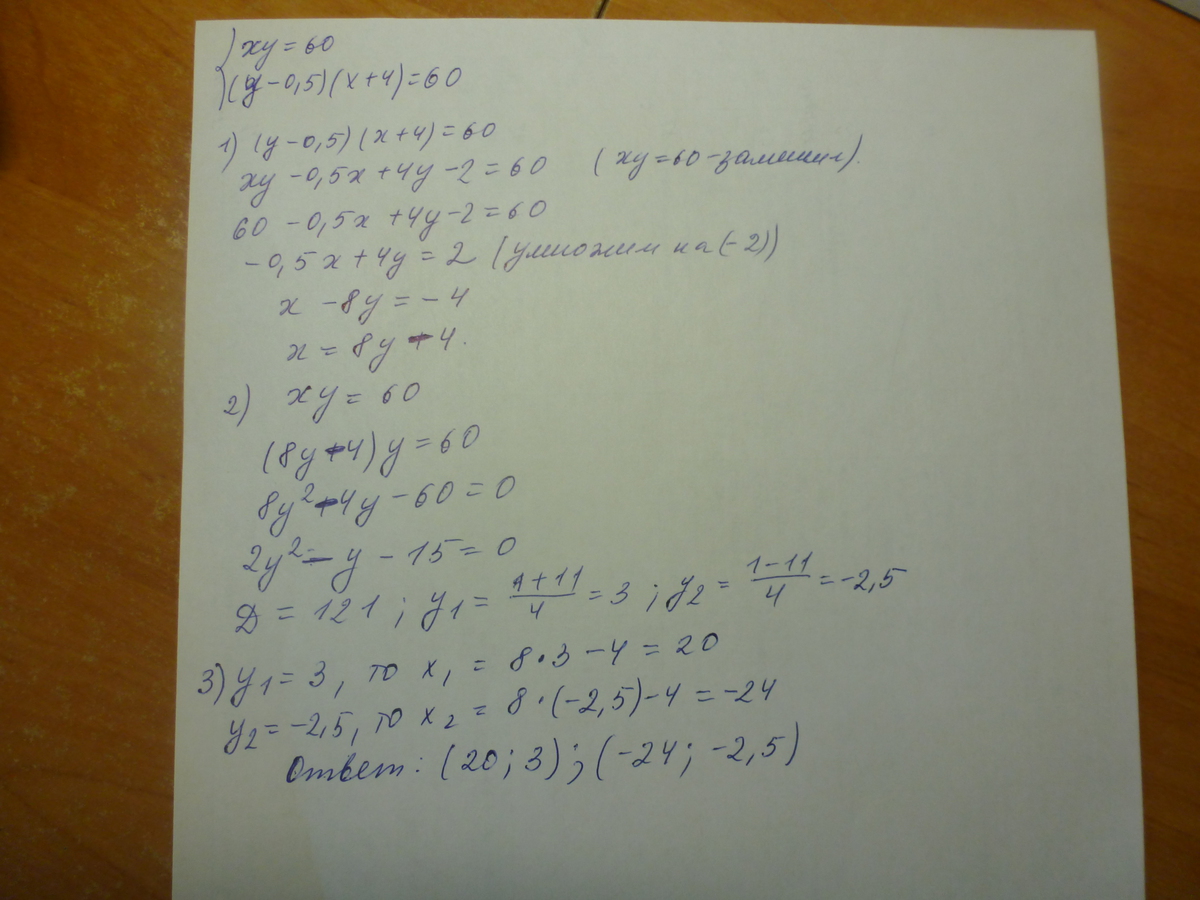 xy = 60
(y - 0,5)(x + 4) = 60
1) (y - 0,5)(x + 4) = 60
xy - 0,5x + 4y - 2 = 60 (xy = 60 - заменил).
60 - 0,5x + 4y - 2 = 60
-0,5x + 4y = 2 (умножим на (-2))
x - 8y = -4
x = 8y - 4.
2) xy = 60
(8y - 4)y = 60
8y² - 4y - 60 = 0
2y² - y - 15 = 0
D = 121; y₁ = (1+11)/4 = 3; y₂ = (1-11)/4 = -2,5
3) y₁ = 3, то x₁ = 8·3 - 4 = 20
y₂ = -2,5, то x₂ = 8·(-2,5) - 4 = -24
Ответ: (20; 3); (-24; -2,5)